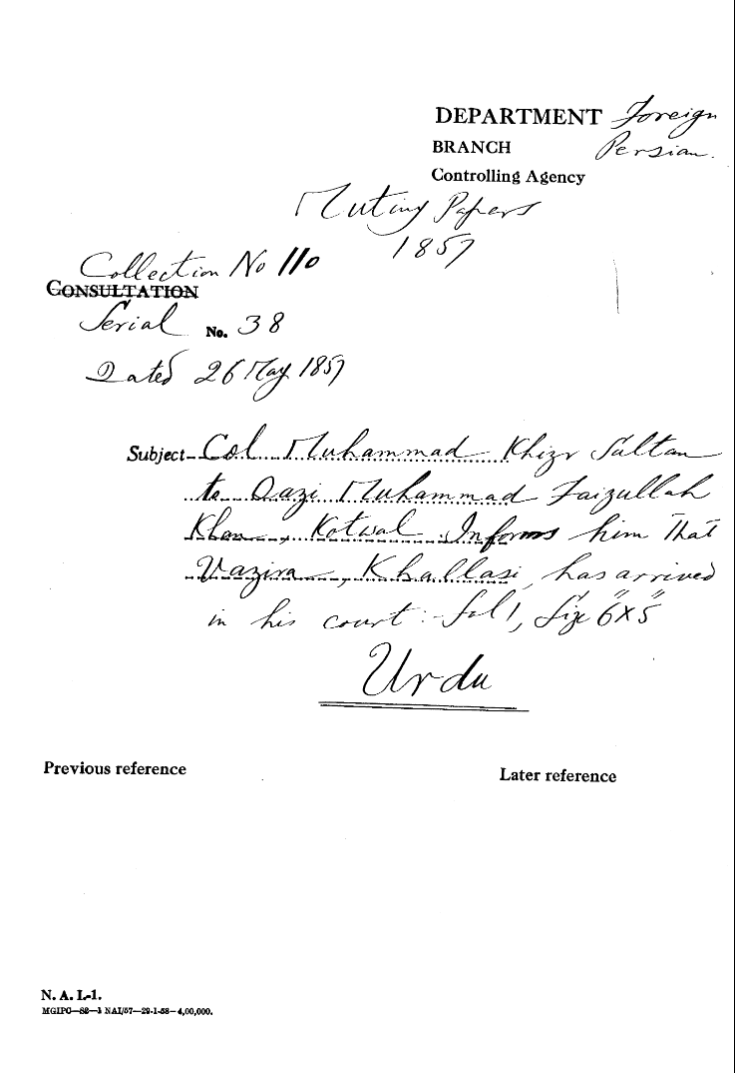 DEPARTMENT Foreign
BRANCH Persian.
Controlling Agency
Mutiny Papers
1857
Collection No 110
CONSULTATION
Serial No. 38
Dated 26 May 1857
Subject- Col Muhammad Khizr Sultan
to Qazi Muhammad Faizullah
Khan, Kotwal. Informs him that
Vazira, Khallasi, has arrived
in his court. Fol 1, Size 6"x5"
Urdu
Previous reference
Later reference
N. A. I.-1.
MGIPC—S2—3 NAI/57—29-1-58—4,00,000.